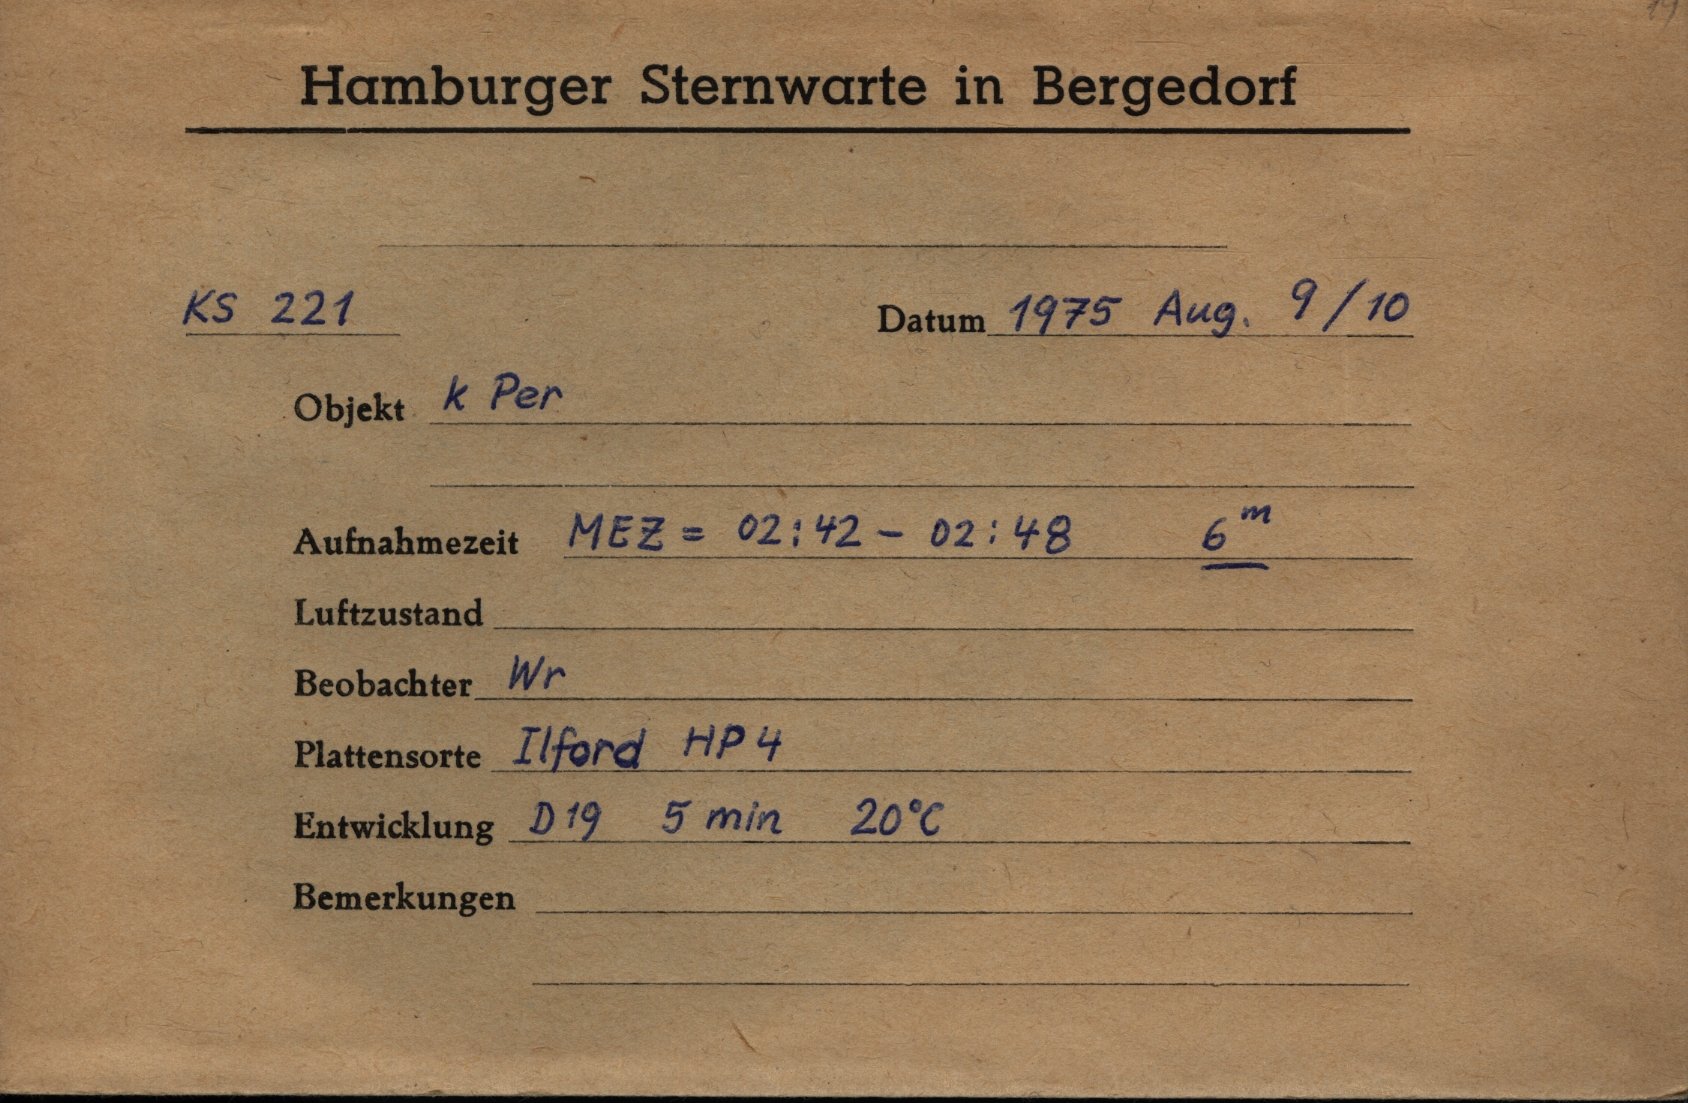 Hamburger Sternwarte in Bergedorf
KS 221 Datum 1975 Aug. 9/10
Objekt k Per
Aufnahmezeit MEZ = 02:42 - 02:48 6ᵐ
Luftzustand
Beobachter Wr
Plattensorte Ilford HP4
Entwicklung D19 5 min 20°C
Bemerkungen